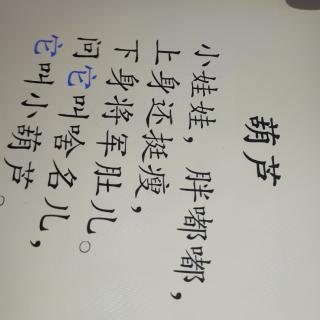 葫芦
小娃娃，胖嘟嘟，
上身还挺瘦，
下身将军肚儿。
问它叫啥名儿，
它叫小葫芦。